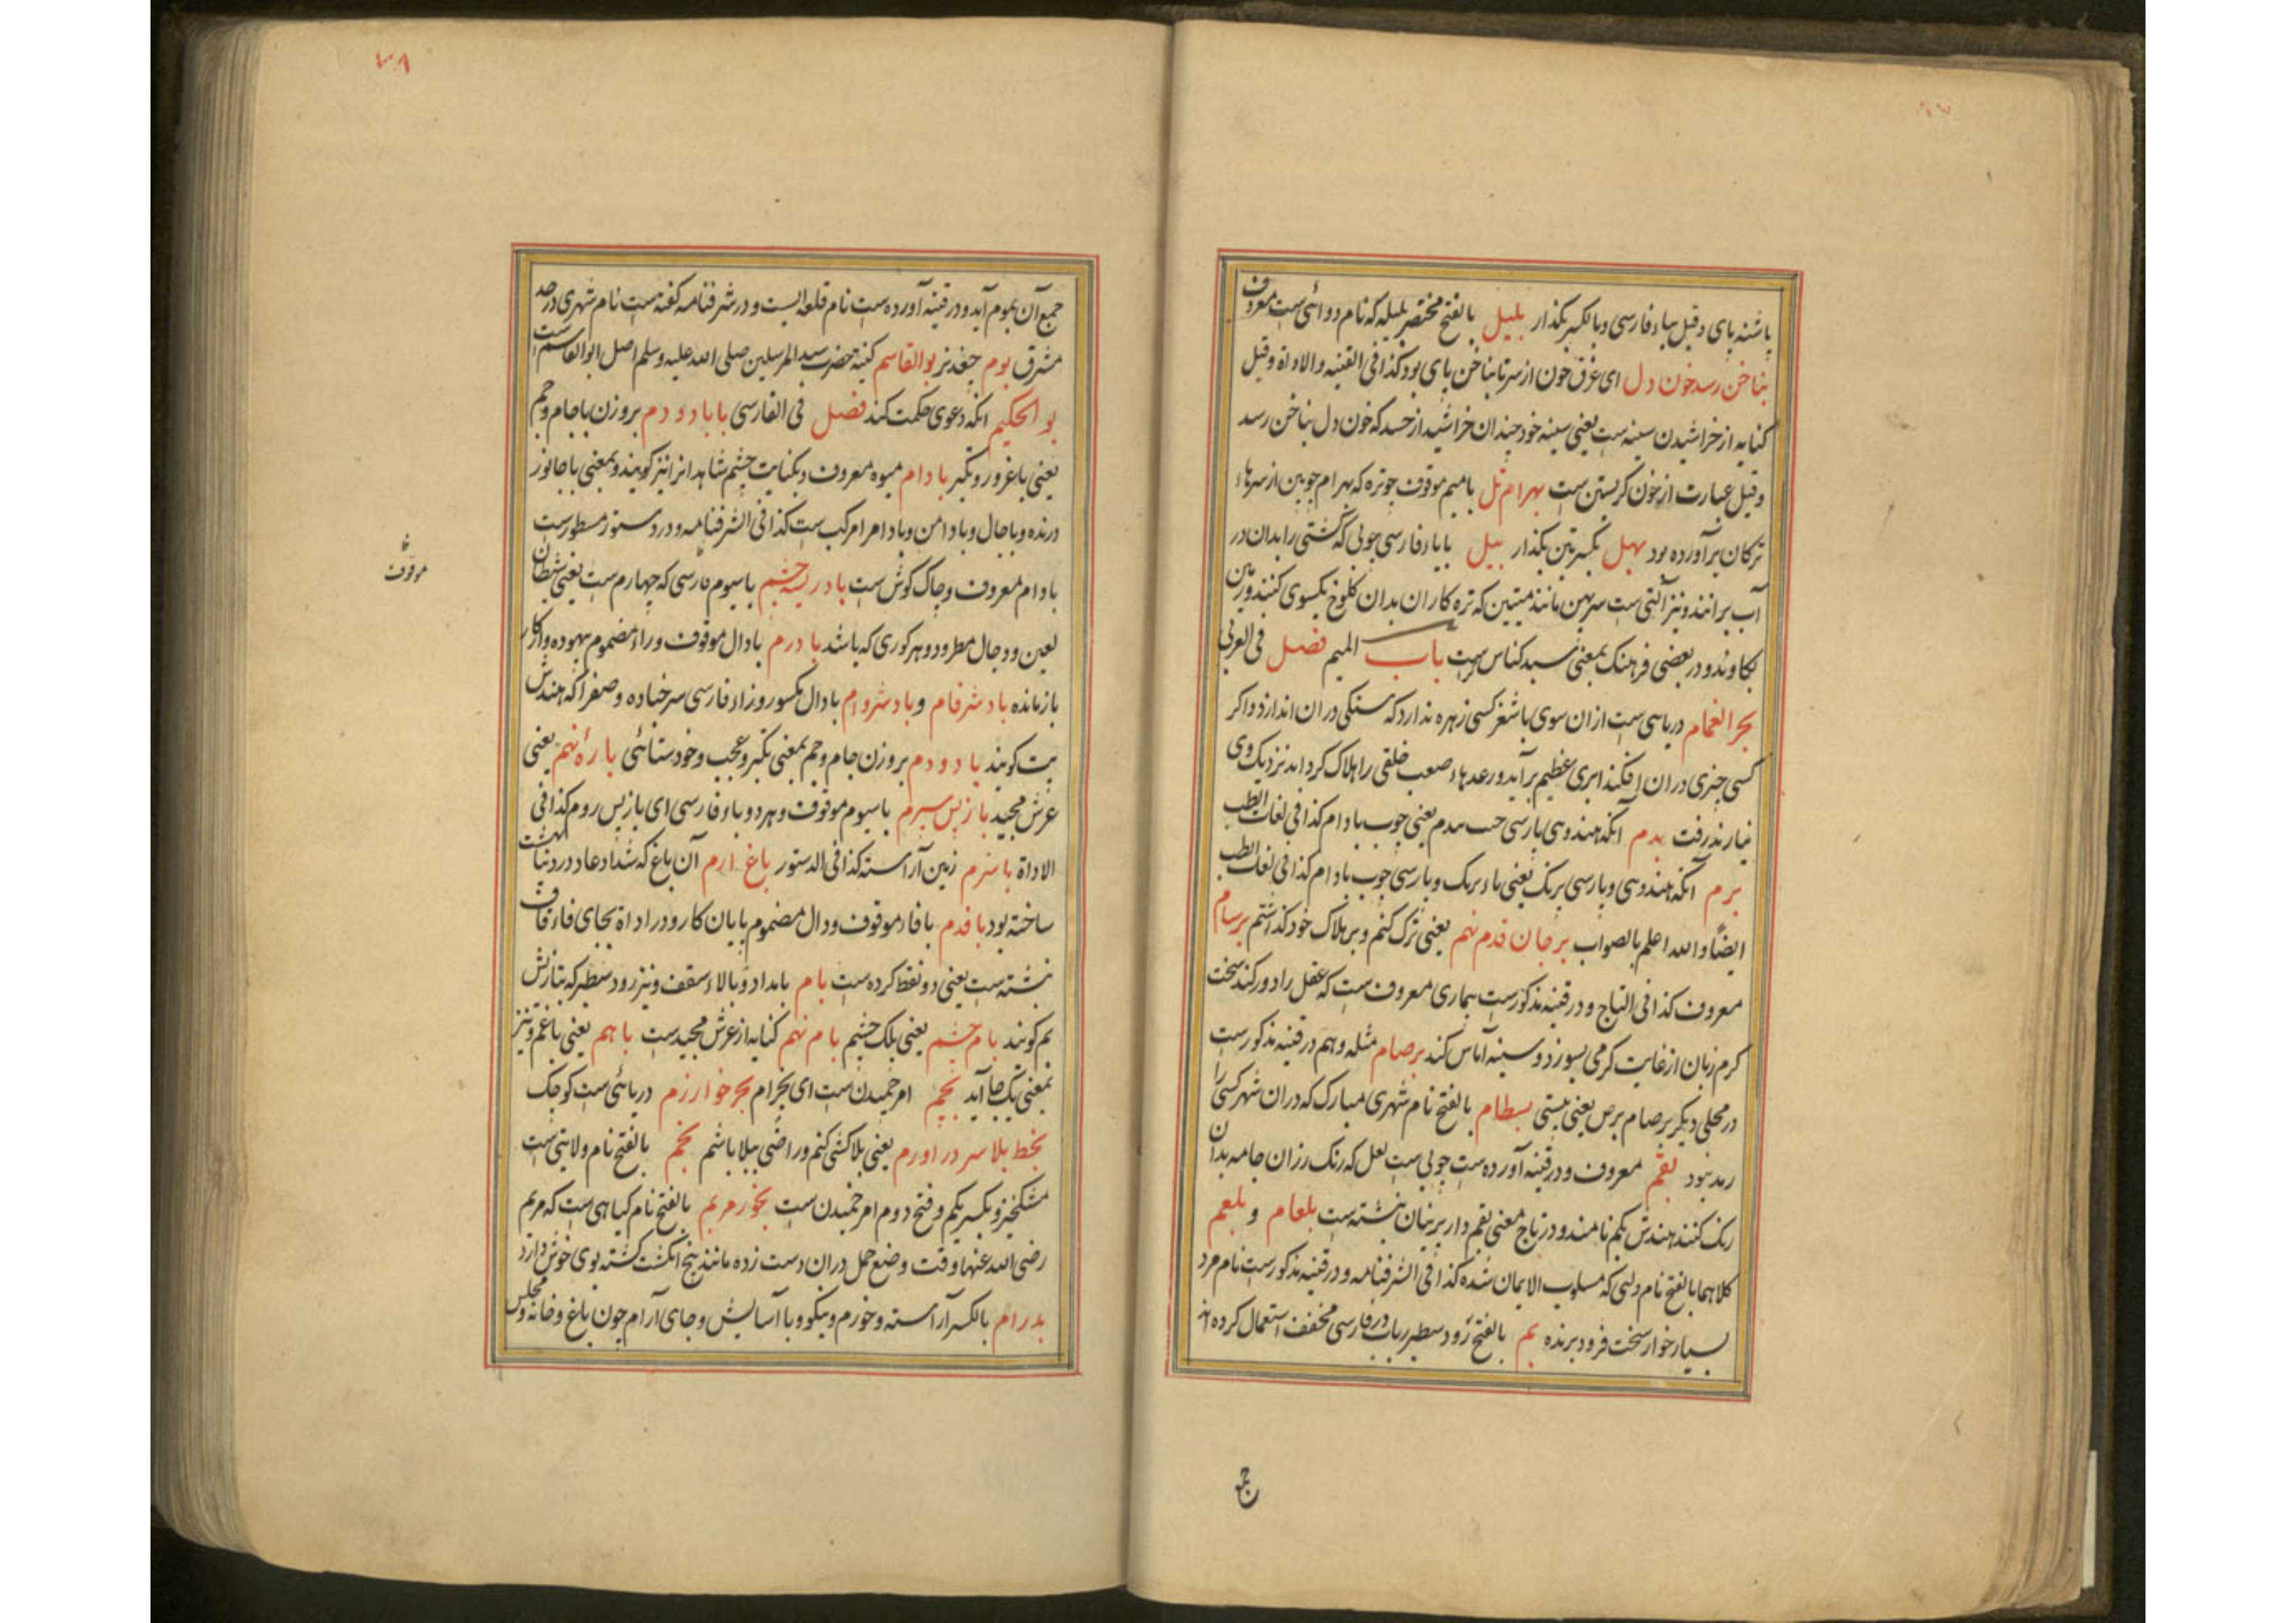 پاشنه پای و قیل بباء فارسی و بالکسر بگذار بلیل بالفتح مختصر بلیله که نام دوائی ست معروف
بناخن رسد خون دل ای غرق خون از سر تا بناخن پای بود کذا فی القنیه والاداة و قیل
کنایه از خراشیدن سینه ست یعنی سینه خود چندان خراشید از حسد که خون دل بناخن رسد
و قیل عبارت از خون گریستن ست بهرام تل بامیم موقوف چوتره که بهرام چوبین از سرهاء
ترکان برآورده بود بهل بکسرتین بگذار بیل با یاء فارسی چوبی که کشتی را بدان در
آب برانند و نیز آلتی ست سر پهن مانند میتین که تره کاران بدان کلوخ یکسوی کنند و زمین
بکاوند و در بعضی فرهنگ بمعنی سبد کناس ست باب المیم فصل فی العربی
بحر الغمام دریاسی ست از ان سوی باشغر کسی زهره ندارد که سنگی در ان اندازد و اگر
کسی چیزی در ان افکند ابری عظیم برآید و رعدهاء صعب خلقی را هلاک گرداند نزدیک وی
نیارند رفت بدم آنکه هندوی پارسی حب بدم یعنی چوب بادام کذا فی لغات الطب
برم آنکه هندوسی و پارسی برنک یعنی باء برنک و پارسی چوب بادام کذا فی لغات الطب
ایضا و الله اعلم بالصواب برجان قدم نهم یعنی ترک کنم و بر هلاک خود گذاشتم برسام
معروف کذا فی التاج و در قنیه مذکورست بیماری معروف ست که عقل را دور کند سخت
گرم زبان از غایت گرمی بسوزد و سینه آماس کند برصام مثله و هم در قنیه مذکورست
در محلی دیگر برصام برص یعنی پیستی بسطام بالفتح نام شهری مبارک که دران شهر کسی را
رمد نبود بقم معروف و در قنیه آورده ست چوبی ست لعل که رنگ رزان جامه بدان
رنگ کنند هندش پکم نامند و در تاج معنی بقم دار پرنیان نبشته ست بلعام و بلعم
کلاهما بالفتح نام ولیی که مسلوب الایمان شده کذا فی الشرفنامه و در قنیه مذکورست نام مرد
بسیار خوار سخت فرو برنده بم بالفتح رود سطبر رباب در فارسی مخفف استعمال کرده اند
جمع
۷۸
جمع آن بموم آید و در قنیه آورده ست نام قلعه ایست و در شرفنامه گفته ست نام شهری در حد
مشرق بوم جغد نر بوالقاسم کنیه حضرت سید المرسلین صلی الله علیه وسلم اصل ابوالقاسم ست
بوالحکیم آنکه دعوی حکمت کند فصل فی الفارسی باباد و دم بروزن باجام و جم
یعنی باغرور و تکبر بادام میوه معروف و بکنایت چشم شاهد انرا نیز گویند و بمعنی با جانور
درنده و باجال و بادامن و بادام امر مرکب ست کذا فی الشرفنامه و در دستور مسطورست
بادام معروف و چاک گوش ست بادریسه چشم باسیوم فارسی که چهارم ست یعنی شیطان
موقوف
لعین و دجال مطرود و هر کوری که باشد بادرم بادال موقوف و راء مضموم بیهوده و از کار
بازمانده بادشرفام و بادشروام بادال مکسور و زاء فارسی سرخباده و صفرا که هندش
پت گویند باد و دم بروزن جام و جم بمعنی تکبر و عجب و خودستائی باره نهم یعنی
عرش مجید بازپس سپرم باسیوم موقوف و هر دو باء فارسی ای بازپس روم کذا فی
الاداة باسرم زمین آراسته کذا فی الدستور باغ ارم آن باغ که شداد عاد در دنیا بهشت
ساخته بود بافدم بافاء موقوف و دال مضموم پایان کار و در اداة بجای فاء قاف
نبشته ست یعنی دو نقط کرده ست بام بامداد و بالاء سقف و نیز رود سطبر که بتازیش
بم گویند بام چشم یعنی پلک چشم بام نهم کنایه از عرش مجید ست باهم یعنی باغم و نیز
بمعنی یکجا آید بچم امر چمیدن ست ای بخرام بحر خوارزم دریائی ست کوچک
بخط بلا سر در اورم یعنی بلاکشی کنم و راضی ببلا باشم بخم بالفتح نام ولایتی ست
مشک خیز و بکسر یکم و فتح دوم امر خمیدن ست بخور مریم بالفتح نام گیاهی ست که مریم
رضی الله عنها وقت وضع حمل دران دست زده مانند پنج انگشت گشته بوی خوش دارد
بدرام بالکسر آراسته و خورم و نیکو و با آسایش و جای آرام چون باغ و خانه و مجلس